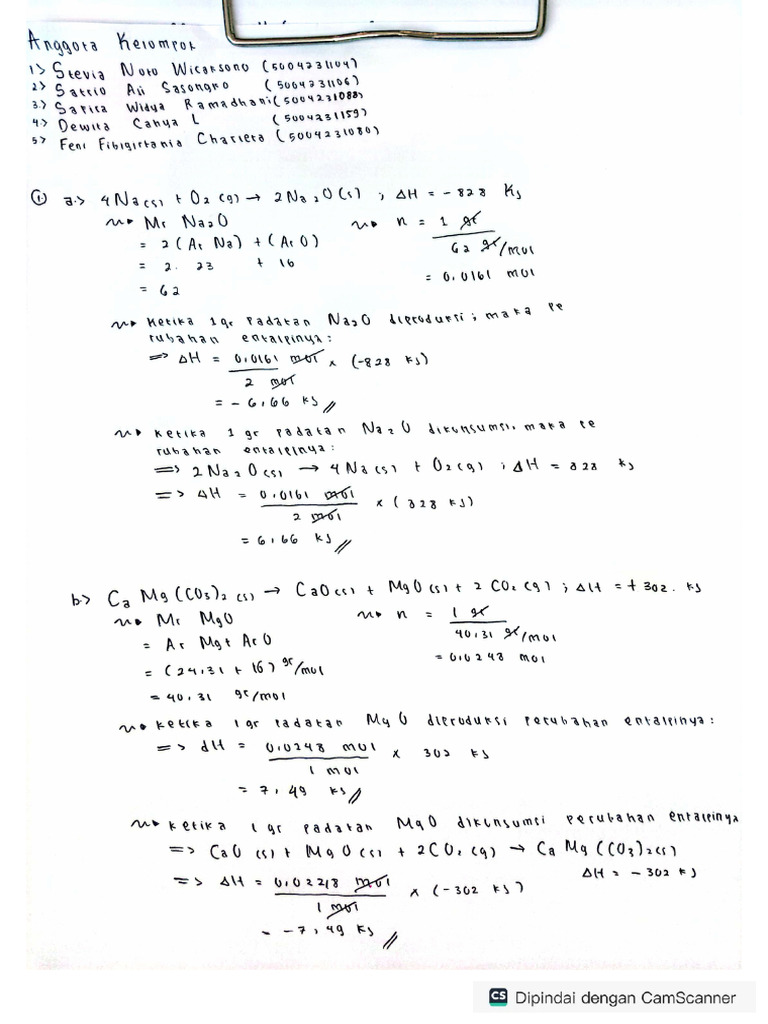 Anggota Kelompok
1> Stevia Noto Wicaksono (5004231104)
2> Satrio Aji Sasongko (5004231106)
3.> Sarica Widya Ramadhani (5004231088)
4.> Dewita Cahya L (5004231159)
5> Feni Fibigirtania Charieta (5004231080)
① a.> 4Na(s) + O2 (g) → 2Na2O(s) ; ΔH = -828 KJ
Mr Na2O
= 2(Ar Na) + (Ar O)
= 2. 23 + 16
= 62
n = 1 gr / 62 gr/mol
= 0.0161 mol
Ketika 1gr Padatan Na2O diproduksi ; maka Pe
rubahan entalpinya :
=> ΔH = 0,0161 mol / 2 mol x (-828 KJ)
= - 6,66 KJ //
Ketika 1 gr Padatan Na2O dikonsumsi, maka Pe
rubahan entalpinya :
=> 2Na2O(s) → 4Na(s) + O2(g) ; ΔH = 828 KJ
=> ΔH = 0,0161 mol / 2 mol x (828 KJ)
= 6,66 KJ //
b.> Ca Mg(CO3)2 (s) → CaO(s) + MgO(s) + 2 CO2 (g) ; ΔH = + 302. KJ
Mr MgO
= Ar Mg + Ar O
= (24,31 + 16) gr/mol
= 40,31 gr/mol
n = 1 gr / 40,31 gr/mol
= 0,0248 mol
Ketika 1gr Padatan MgO diproduksi Perubahan entalpinya :
=> dH = 0,0248 mol / 1 mol x 302 KJ
= 7,49 KJ //
Ketika 1gr Padatan MgO dikonsumsi Perubahan entalpinya
=> CaO (s) + MgO(s) + 2CO2 (g) → Ca Mg (CO3)2(s)
ΔH = - 302 KJ
=> ΔH = 0,02248 mol / 1 mol x (-302 KJ)
= -7,49 KJ //
CS Dipindai dengan CamScanner